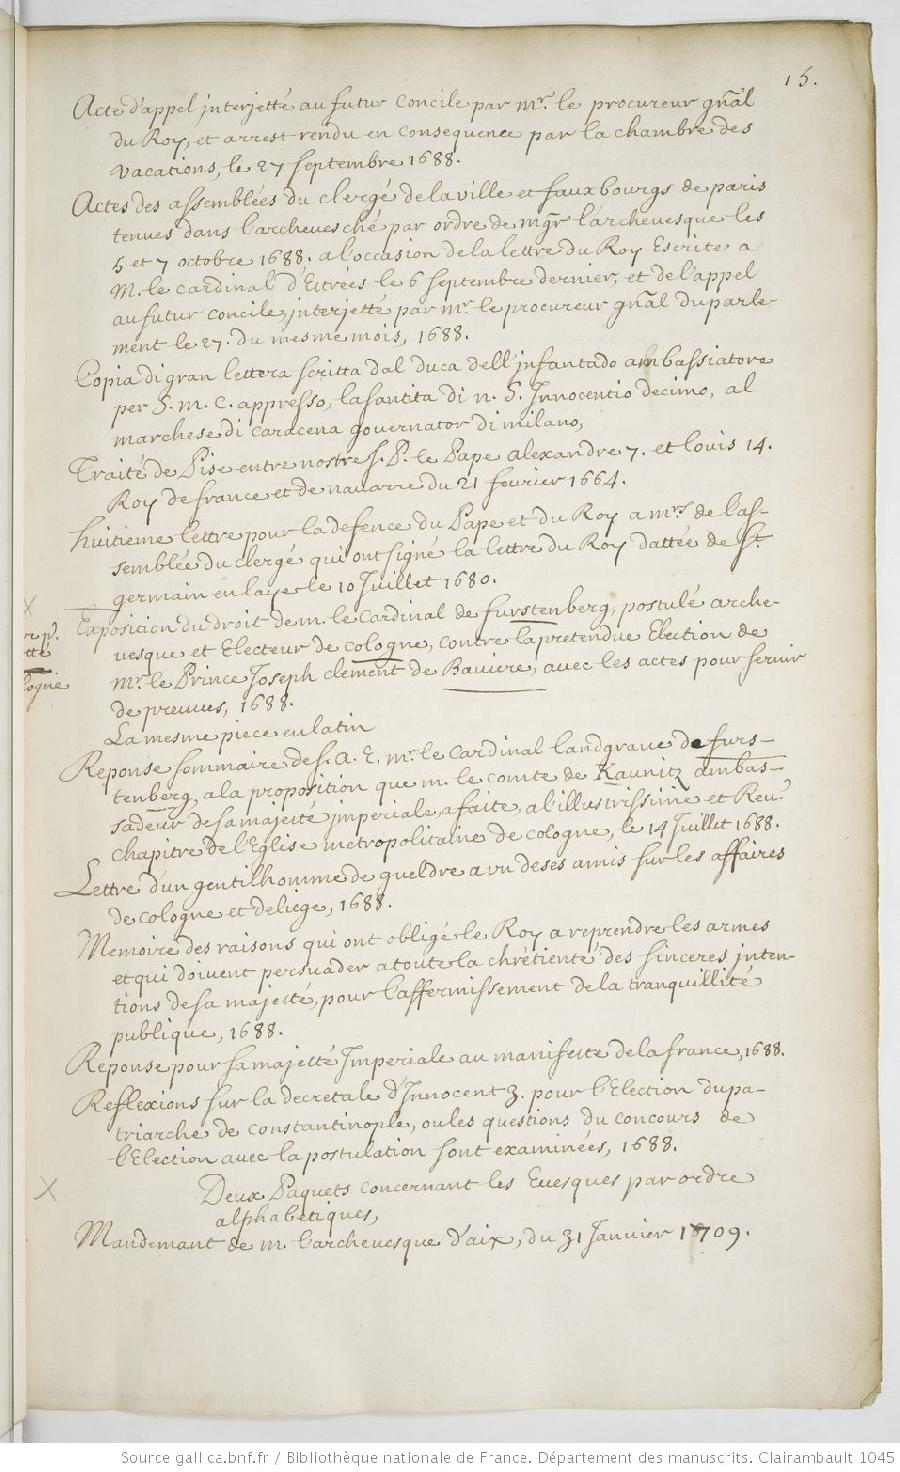 15.
Acte d'appel interjetté au futur concile par mr. le procureur gñal
du Roy, et arrest rendu en consequence par la chambre des
vacations, le 27 septembre 1688.
Actes des assemblées du clergé de la ville et fauxbourgs de paris
tenues dans l'archevesché par ordre de mgr l'archevesque les
5 et 7 octobre 1688. a l'occasion de la lettre du Roy Escrite a
M. le cardinal d'Estrées le 6 septembre dernier, et de l'appel
au futur concile, interjetté par mr. le procureur gñal du parle-
ment le 27. du mesme mois, 1688.
Copia di gran lettera scritta dal duca dell'infantado ambassiatore
per S. m. C. appresso, la santita di n. S. Innocentio decimo, al
marchese di caracena governator di milano,
Traité de Pise entre nostre S. P. le Pape alexandre 7. et louis 14.
Roy de france et de navarre du 21 fevrier 1664.
huitieme lettre pour la defence du Pape et du Roy a mrs de l'as-
semblée du clergé qui ont signé la lettre du Roy dattée de St.
germain en laye le 10 Juillet 1680.
Exposicion du droit de m. le cardinal de furstenberg, postulé arche-
vesque et Electeur de cologne, contre la pretendue Election de
mr. le Prince Joseph clement de Baviere, avec les actes pour servir
de preuves, 1688.
La mesme piece en latin
Reponse sommaire de S. A. E. mr. le cardinal landgrave de furs-
tenberg, a la proposition que m. le comte de Kaunitz ambas-
sadeur de sa majesté imperiale, a faite, a l'illustrissime et Reu.
chapitre de l'Eglise metropolitaine de cologne, le 14 Juillet 1688.
Lettre d'un gentilhomme de gueldre a un de ses amis sur les affaires
de cologne et de liege, 1688.
Memoire des raisons qui ont obligé le Roy a reprendre les armes
et qui doivent persuader a toute la chrétienté des sinceres inten-
tions de sa majesté, pour l'affermissement de la tranquillité
publique, 1688.
Reponse pour sa majesté Imperiale au manifeste de la france, 1688.
Reflexions sur la decretale d'Innocent 3. pour l'Election du pa-
triarche de constantinople, ou les questions du concours de
l'Election avec la postulation sont examinées, 1688.
Deux Paquets concernant les Evesques par ordre
alphabetiques,
Mandemant de m. l'archevesque d'aix, du 31 Janvier 1709.
Source gallica.bnf.fr / Bibliothèque nationale de France. Département des manuscrits. Clairambault 1045